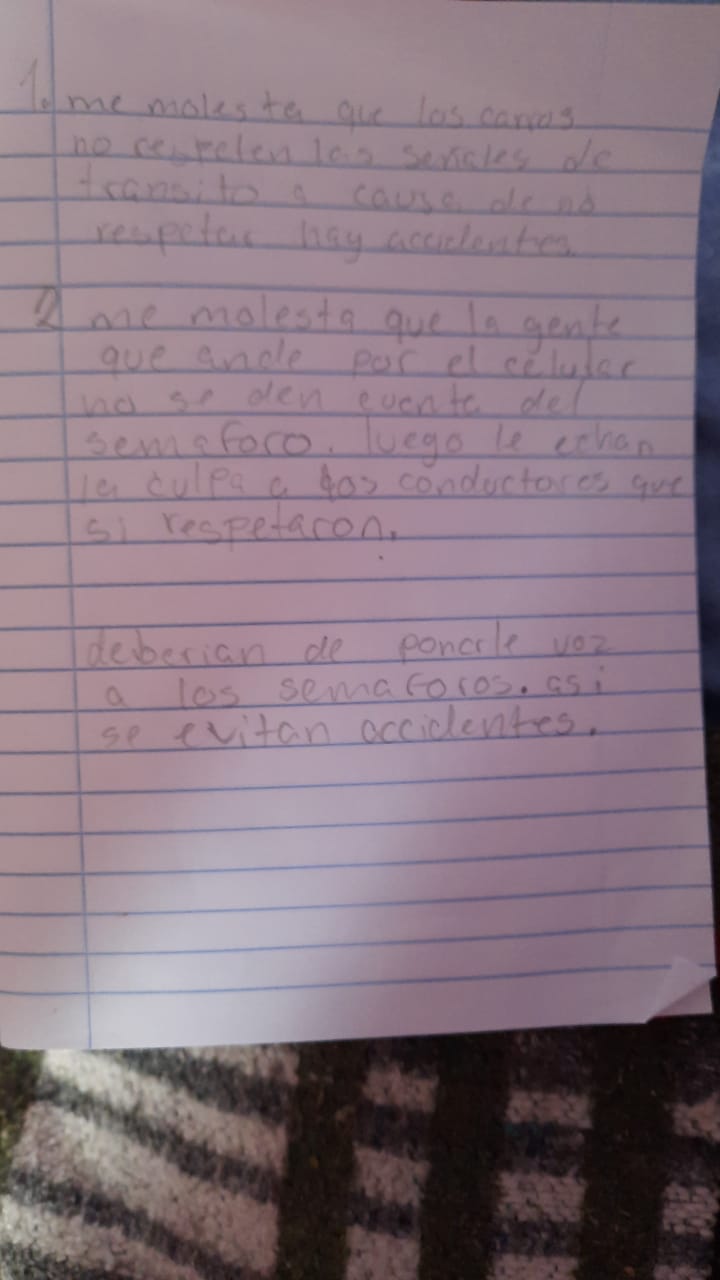 1. me molesta que los carros
no respeten las señales de
transito a causa de no
respetar hay accidentes
2 me molesta que la gente
que ande por el celular
no se den cuenta del
semaforo. luego le echan
la culpa a los conductores que
si respetaron.
deberian de ponerle voz
a los semaforos. asi
se evitan accidentes.